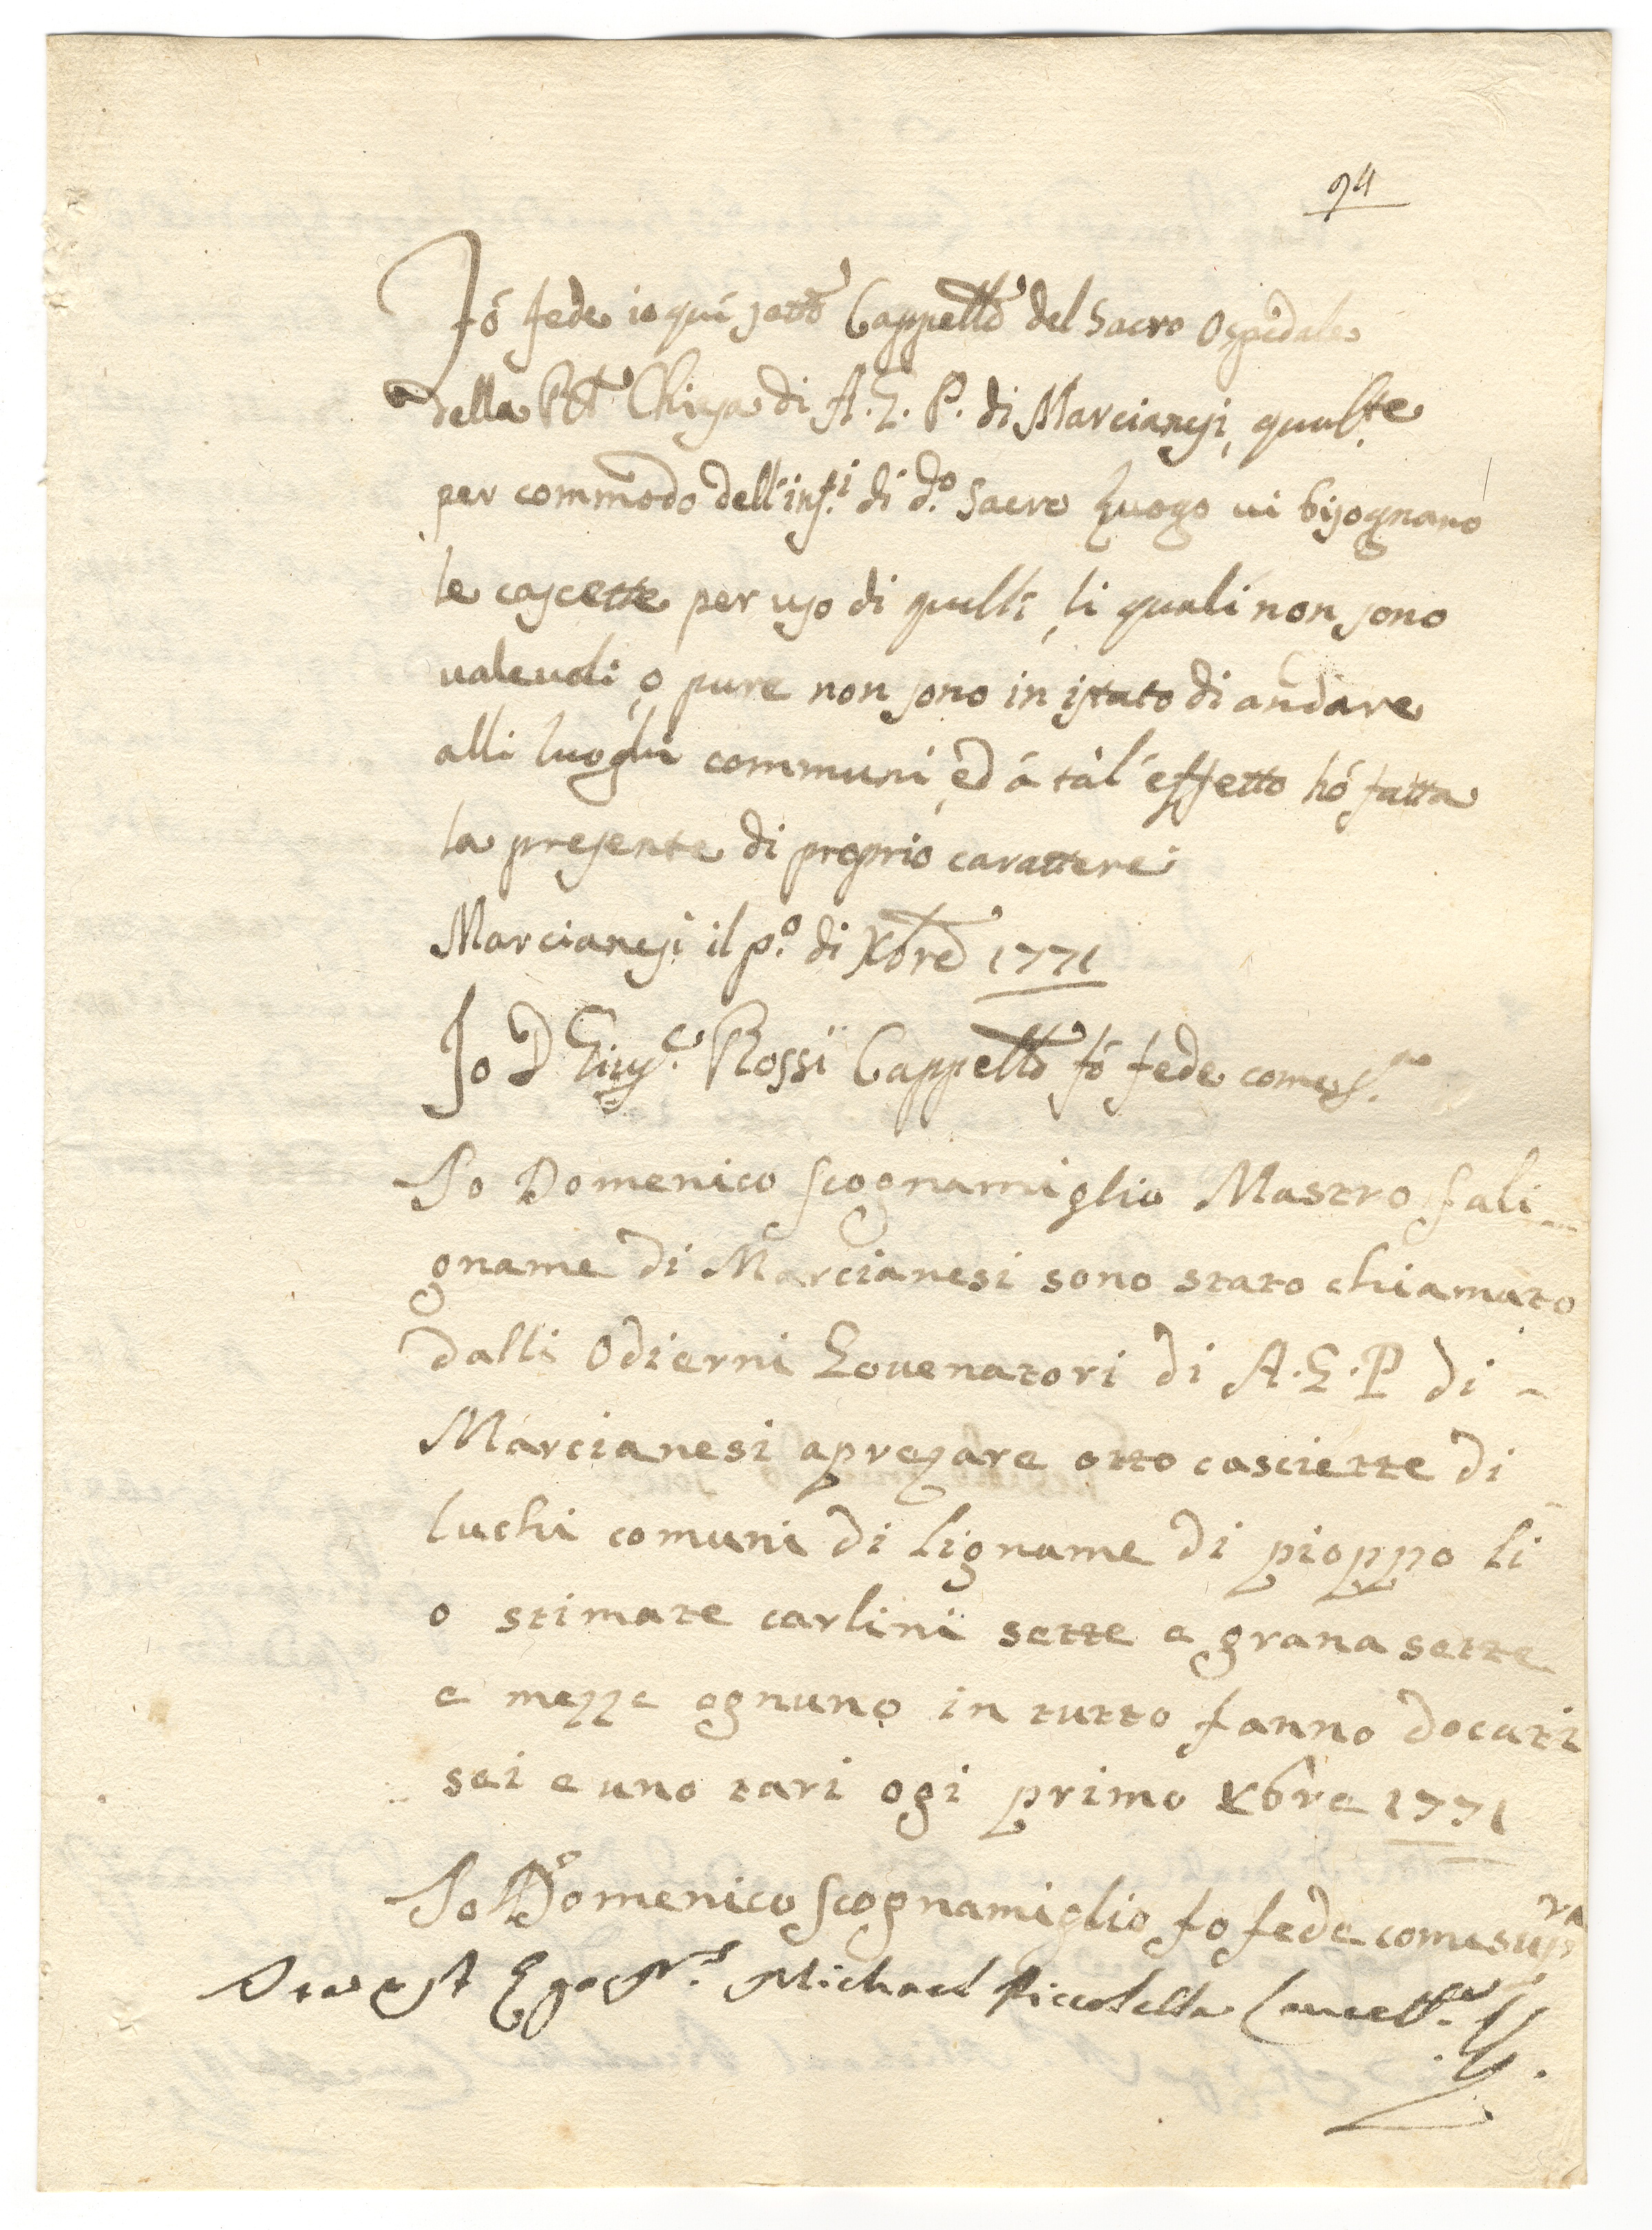 94
Fó fede io quí sotto Cappello del Sacro Ospedale
della Chiesa di A. G. P. di Marcianesi, qualte
per commodo dell'inf.i di d.o Sacro Luogo vi bisognano
le cascette per uso di quelli, li quali non sono
valevoli, o pure non sono in istato di andare
alli luoghi communi, ed á tál'effetto hó fatta
la presente di proprio carattere
Marcianesi il p.o di Xbre 1771
Io D Gius.e Rossi Cappello fó fede come s.a
Io Domenico Scognamiglio Mastro fali
gname di Marcianesi sono stato chiamato
dalli Odierni Governatori di A. G. P di
Marcianesi aprezare otto casciette di
luchi comuni di ligname di pioppo li
o stimate carlini sette e grana sette
e mezze ognuno in tutto fanno docati
sei e uno tari ogi primo Xbre 1771
Io Domenico Scognamiglio fo fede come supra
Ita est Ego N.r Michael Piccolella Cancell.s